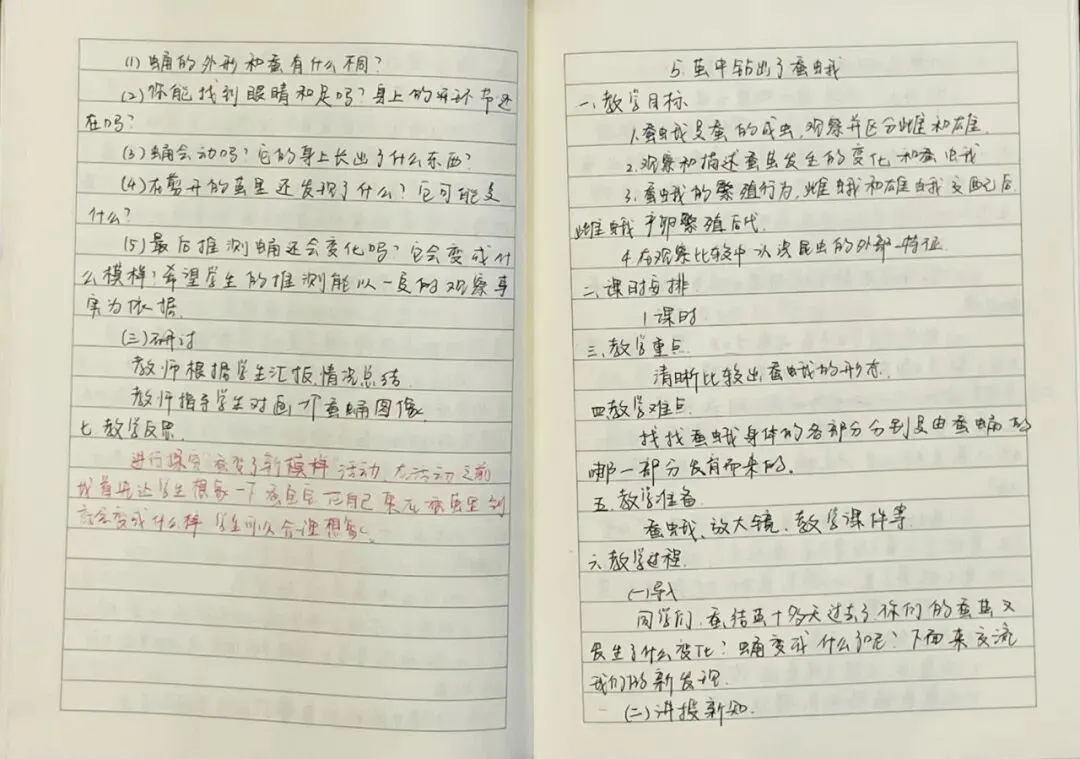 (1)蛹的外形和蚕有什么不同?
(2)你能找到眼睛和足吗?身上的环节还
在吗?
(3)蛹会动吗?它的身上长出了什么东西?
(4)在剪开的茧里还发现了什么?它可能是
什么?
(5)最后推测蛹还会变化吗?它会变成什
么模样!希望学生的推测能以一定的观察事
实为依据。
(三)研讨
教师根据学生汇报情况总结。
教师指导学生对画一个蚕蛹图像。
七.教学反思
进行探究蚕变了新模样活动,在活动之前
我首先让学生想象一下蚕宝宝把自己
会变成什么样 学生可以合理想象。
5.茧中钻出了蚕蛾
一.教学目标
1.蚕蛾是蚕的成虫,观察并区分雌和雄
2.观察和描述蚕茧发生的变化和蚕蛾
3.蚕蛾的繁殖行为,雌蛾和雄蛾交配后
雌蛾产卵繁殖后代
4.在观察比较中认识昆虫的外部特征
二.课时安排
1课时
三.教学重点
清晰比较出蚕蛾的形态.
四.教学难点
找找蚕蛾身体的各部分分别是由蚕蛹的
哪一部分发育而来的.
五.教学准备
蚕蛾、放大镜、教学课件等
六.教学过程.
(一)导入
同学们,蚕结茧十多天过去了,你们的蚕茧又
发生了什么变化?蛹变成什么了呢?下面来交流
我们的新发现.
(二)讲授新知.